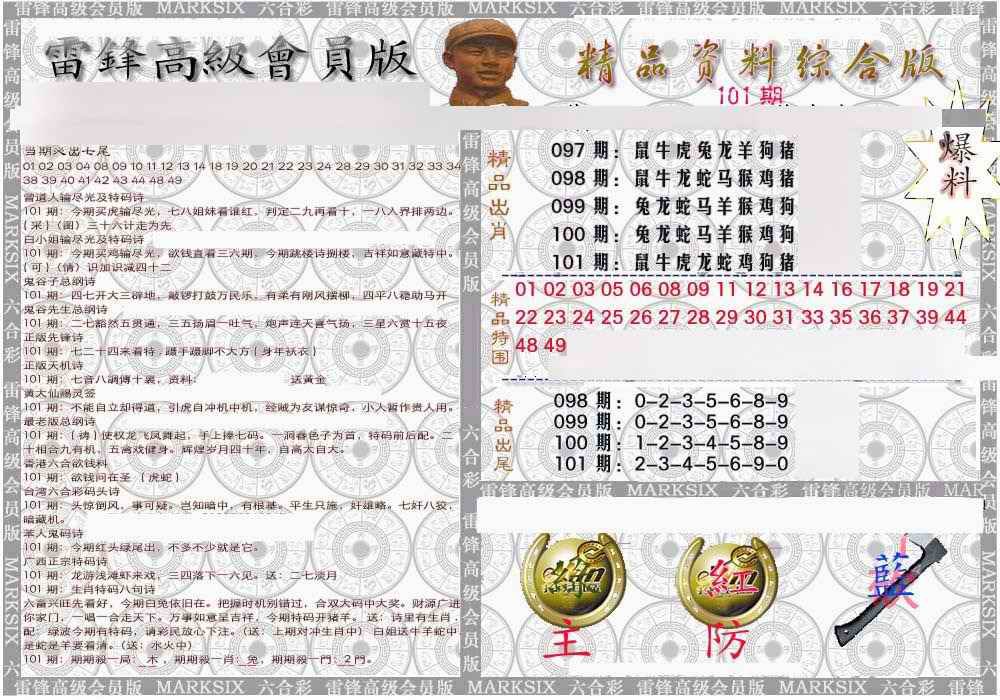 雷锋高級会员版 MARKSIX 六合彩 雷锋高級会员版 MARKSIX 六合彩 雷锋高級会员版 MARKSIX 六合彩
雷鋒高級會員版
精品资料综合版
101期
爆料
01 02 03 04 08 09 10 11 12 13 14 18 19 20 21 22 23 24 28 29 30 31 32 33 34
38 39 40 41 42 43 44 48 49
曾道人输尽光及特码诗
101 期：今期买虎输尽光，七八姐妹看谁红，判定二九再看十，一八人界排两边。
{采}（图）三十六计走为先
白小姐输尽光及特码诗
101 期：今期买鸡输尽光，欲钱直看三六期，今期跳楼诗捌楼，吉祥如意藏特中。
{可}（情）识加识减四十二
鬼谷子总纲诗
101 期：四七开大三辟地，敲锣打鼓万民乐，有柔有刚风摆柳，四平八稳动马开
鬼谷先生总纲诗
101 期：二七豁然五贯通，三五扬眉一吐气，炮声连天喜气扬，三星六赏十五夜
正版先锋诗
101 期：七二十四来看特，蹑手蹑脚不大方{身年袄衣}
正版天机诗
101 期：七音八調傳十裏，资料： 送黃金
黄大仙赐灵签
101 期：不能自立却得道，引虎自冲机中机，经贼为友谋惊奇，小人暂作贵人用。
最老版总纲诗
101 期：{铸}使权龙飞凤舞起，手上捧七码。一洞春色子为首，特码前后配。二
十相合九有机，五离戏健身。辉煌岁月四十年，自高大自大。
香港六合欲钱料
101 期：欲钱问在圣 {虎蛇}
台湾六合彩码头诗
101 期：头惊倒风，事可疑。岂知暗中，有根基。平生只施，奸雄略。七奸八狡，
暗藏机。
苯人鬼码诗
101 期：今期红头绿尾出，不多不少就是它。
广西正宗特码诗
101 期：龙游浅滩虾来戏，三四落下一六见。送：二七淡月
101 期：生肖特码八句诗
六畜兴旺先看好，今期白兔依旧在。把握时机别错过，合双大码中大奖。财源广进
你家门，一唱一合走天下。万事如意呈吉祥，今期特码开猪羊。送：诗里有生肖，
配：绿波今期有特码，请彩民放心下注。（送：上期对冲生肖中） 白姐送牛羊蛇中
是蛇是羊要看清。（送：水火中）
101 期：期期殺一局：木，期期殺一肖：兔，期期殺一門：2門。
精品出肖
097 期：鼠牛虎兔龙羊狗猪
098 期：鼠牛龙蛇马猴鸡猪
099 期：兔龙蛇马羊猴鸡猪
100 期：兔龙蛇马羊猴鸡狗
101 期：鼠牛虎龙蛇鸡狗猪
精品特围
01 02 03 05 06 08 09 11 12 13 14 16 17 18 19 21
22 23 24 25 26 27 28 29 30 31 33 35 36 37 39 44
48 49
精品出尾
098 期：0-2-3-5-6-8-9
099 期：0-2-3-5-6-8-9
100 期：1-2-3-4-5-8-9
101 期：2-3-4-5-6-9-0
雷锋高級会员版 MARKSIX 六合彩 雷锋高級会员版 MARKSIX
紅
藍
主
防
雷锋高級会员版 MARKSIX 六合彩 雷锋高級会员版 MARKSIX 六合彩 雷锋高級会员版 MARKSIX 六合彩